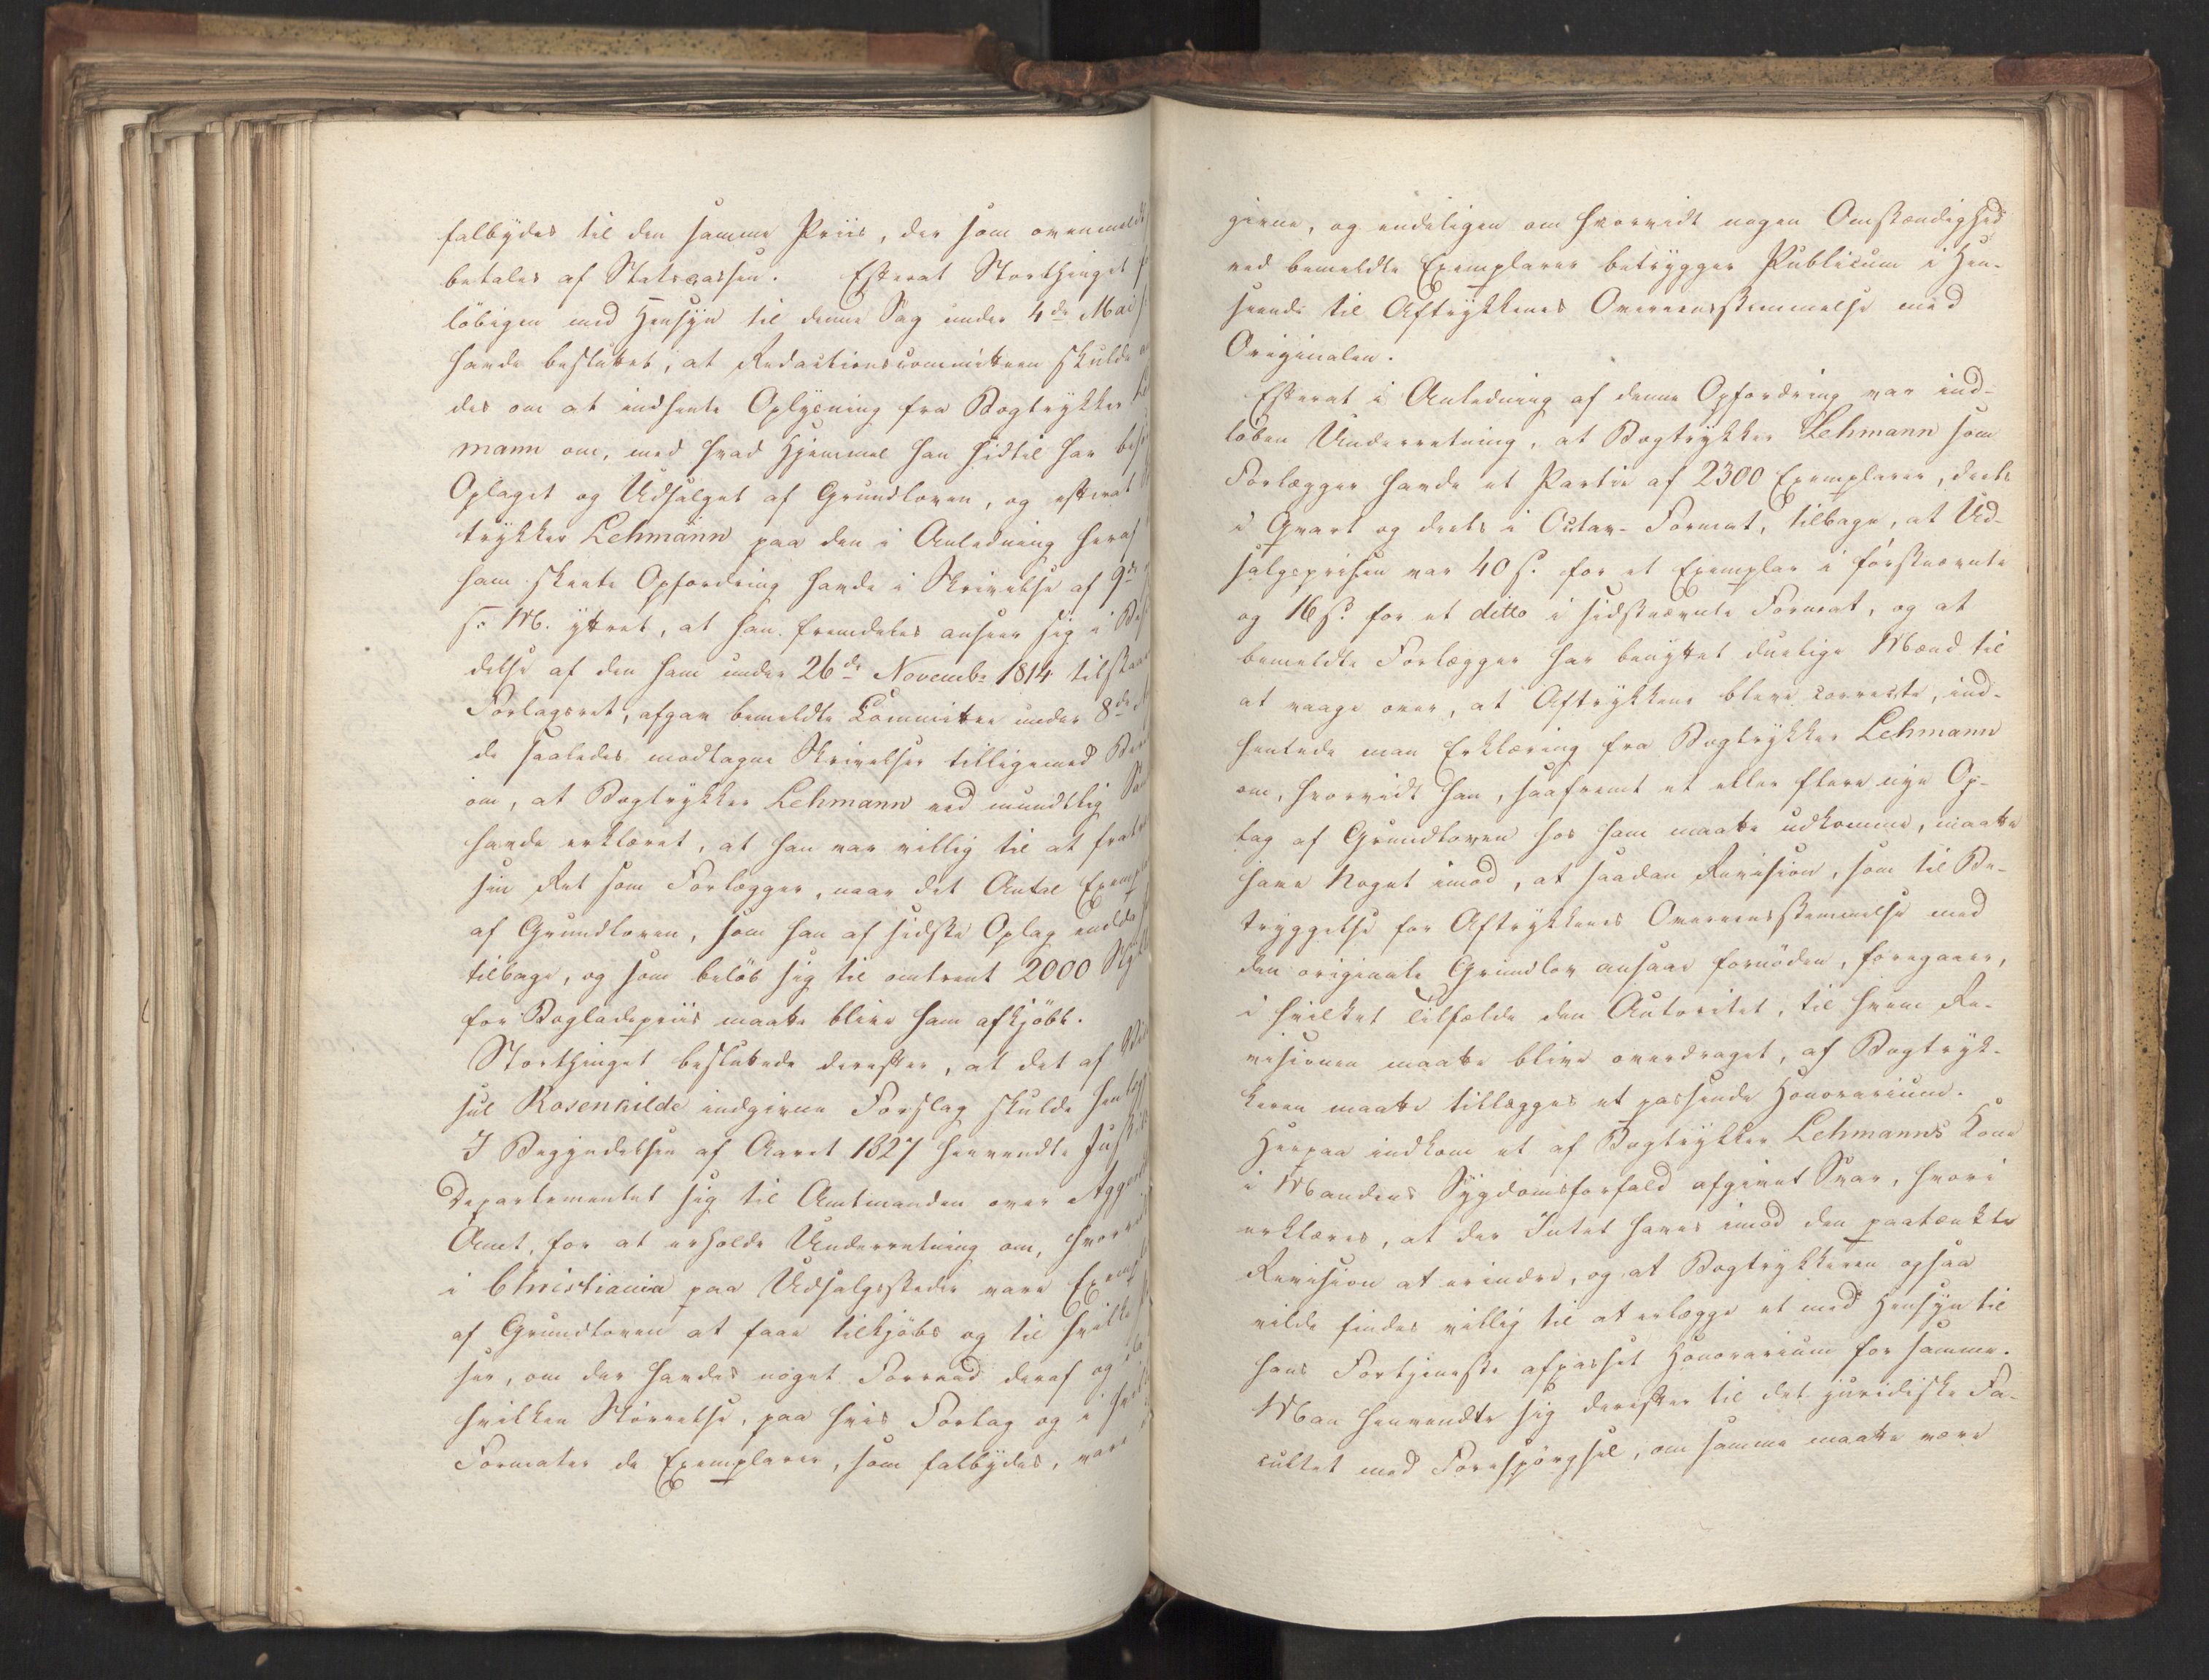 falbydes til den samme Priis, der som ovenmeldt
betales af Statscassen. Efterat Storthinget
løbigen med Hensyn til denne Sag under 4de Mai
havde besluttet, at Redactionscommitteen skulde
des om at indhente Oplysning fra Bogtrykker
mann om, med hvad Hjemmel han hidtil har
Oplaget og Udsalget af Grundloven, og efterat
trykker Lehmann paa den i Anledning heraf
ham skeete Opfordring havde i Skrivelse af 9de
s. M. yttret, at han fremdeles anseer sig i
delse af den ham under 26de Novembr 1814
Forlagsret, afgav bemeldte Committee under 8de
de saaledes modtagne Skrivelser tilligemed
om, at Bogtrykker Lehmann ved mundtlig
havde erklæret, at han var villig til at
sin Ret som Forlægger, naar det Antal
af Grundloven, som han af sidste Oplag endda
tilbage, og som beløb sig til omtrent 2000
for Bogladepriis maatte blive ham afkjøbt.
Storthinget besluttede derefter, at det af
sul Rosenkilde indgivne Forslag skulde
I Begyndelsen af Aaret 1827 henvendte
Departementet sig til Amtmanden over
Amt, for at erholde Underretning om,
i Christiania paa Udsalgssteder vare
af Grundloven at faae tilkjøbs og til
ser, om der havdes noget Forraad deraf og
hvilken Størrelse, paa hvis Forlag og i
Formater de Exemplarer, som falbydes, vare
givne, og endeligen om hvorvidt nogen Omstændighed
ved bemeldte Exemplarer betrygger Publicum i Hen-
seende til Aftrykkenes Overeensstemmelse med
Originalen.
Efterat i Anledning af denne Opfordring var ind-
løben Underretning, at Bogtrykker Lehmann som
Forlægger havde et Partie af 2300 Exemplarer, deels
i Qvart og deels i Octav-Format, tilbage, at Ud-
salgsprisen var 40 s. for et Exemplar i førstnævnte
og 16 s. for et ditto i sidstnævnte Format, og at
bemeldte Forlægger har benyttet duelige Mænd til
at vaage over, at Aftrykkene bleve correcte, ind-
hentede man Erklæring fra Bogtrykker Lehmann
om, hvorvidt han, saafremt et eller flere nye Op-
lag af Grundloven hos ham maatte udkomme, maatte
have Noget imod, at saadan Revision, som til Be-
tryggelse for Aftrykkenes Overeensstemmelse med
den originale Grundlov ansaaes fornøden, foregaaer,
i hvilket Tilfælde den Autoritet, til hvem Re-
visionen maatte blive overdraget, af Bogtryk-
keren maatte tillægges et passende Honorarium.
Herpaa indkom et af Bogtrykker Lehmanns Kone
i Mandens Sygdomsforfald afgivet Svar, hvori
erklæres, at der Intet haves imod den paatænkte
Revision at erindre, og at Bogtrykkeren ogsaa
vilde findes villig til at erlægge et med Hensyn til
hans Fortjeneste afpasset Honorarium for samme.
Man henvendte sig derefter til det juridiske Fa-
cultet med Forespørgsel, om samme maatte være